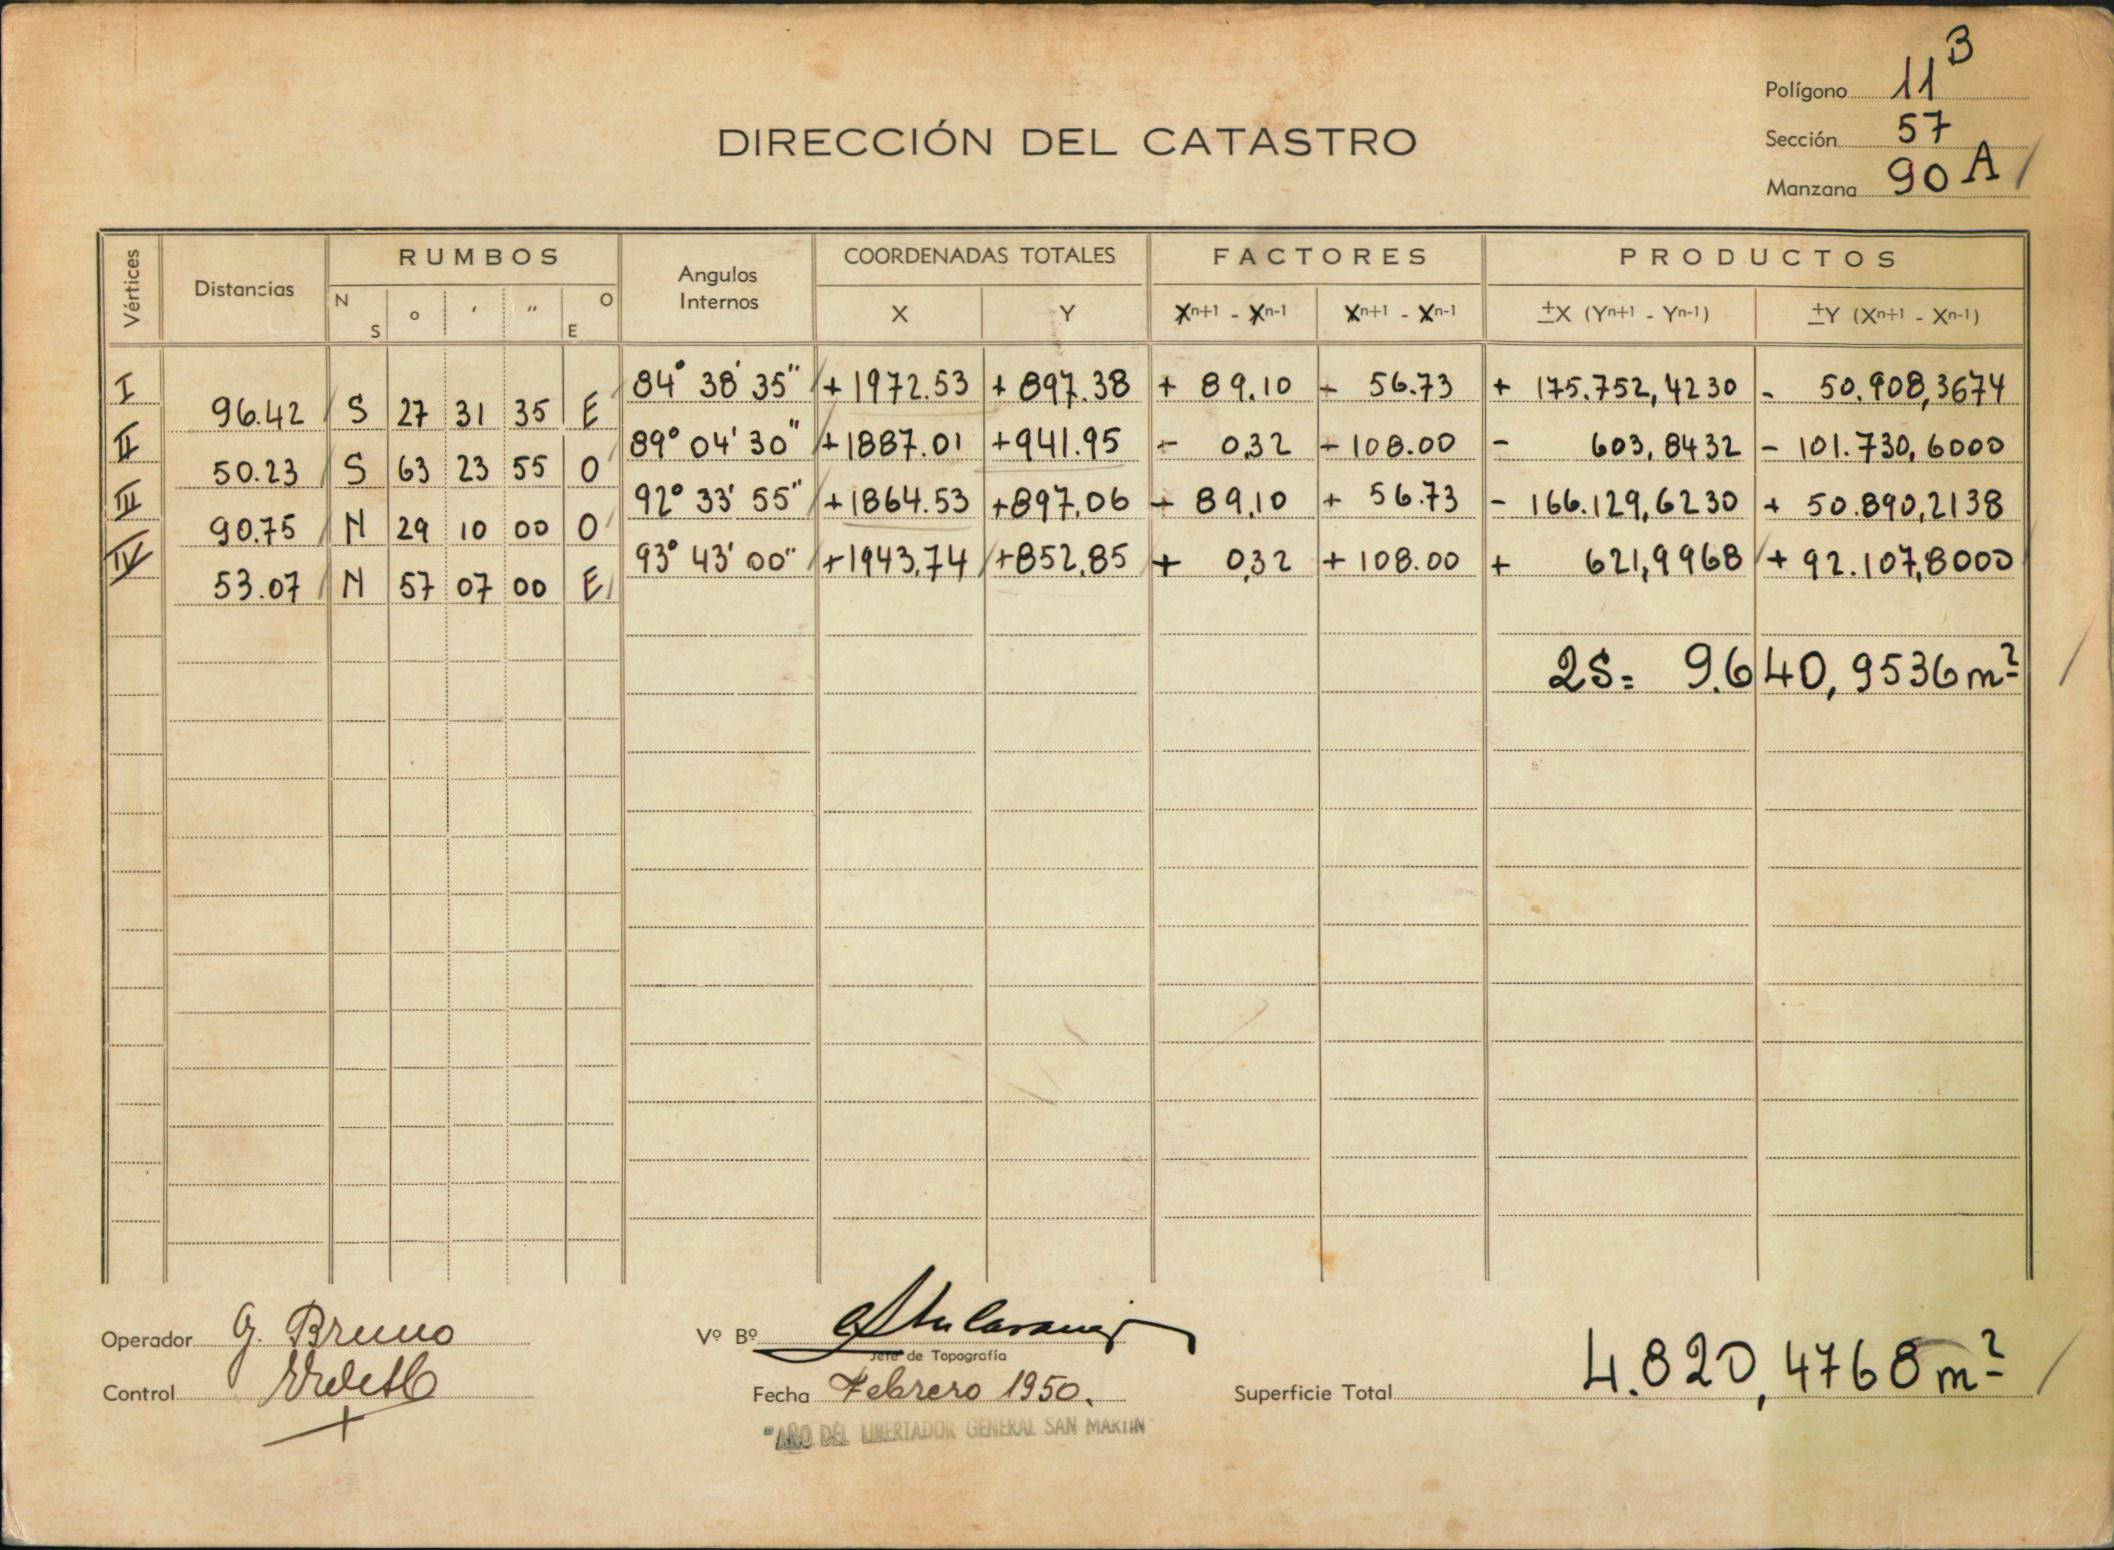 Polígono 11 B
Sección 57
Manzana 90 A
DIRECCIÓN DEL CATASTRO
Vértices Distancias RUMBOS Angulos Internos COORDENADAS TOTALES FACTORES PRODUCTOS
N S ° ' " O E X Y Xn+1 - Xn-1 Xn+1 - Xn-1 ±X (Yn+1 - Yn-1) ±Y (Xn+1 - Xn-1)
I 84° 38' 35" +1972.53 +897.38 + 89.10 - 56.73 + 175.752,4230 - 50.908,3674
96.42 S 27 31 35 E
II 89° 04' 30" +1887.01 +941.95 - 0.32 -108.00 - 603,8432 - 101.730,6000
50.23 S 63 23 55 O
III 92° 33' 55" +1864.53 +897.06 - 89.10 + 56.73 - 166.129,6230 + 50.890,2138
90.75 N 29 10 00 O
IV 93° 43' 00" +1943.74 +852.85 + 0.32 +108.00 + 621,9968 + 92.107,8000
53.07 N 57 07 00 E
2S= 9.640,9536 m²
Operador G. Bruno
Vº Bº
Jefe de Topografía
Control
Fecha Febrero 1950.
Superficie Total 4.820,4768 m²
"AÑO DEL LIBERTADOR GENERAL SAN MARTIN"